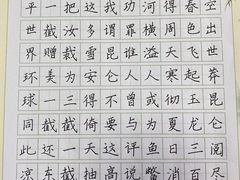 空出世莽昆仑阅尽
春色飞起玉龙三百
得周天寒彻夏日消
河横溢人或为鱼鳖
功罪谁人曾与评说
我谓昆仑不要这高
这多雪安得倚天抽
把汝裁为三截一截
一截赠美一截还东
平世界环球同此凉